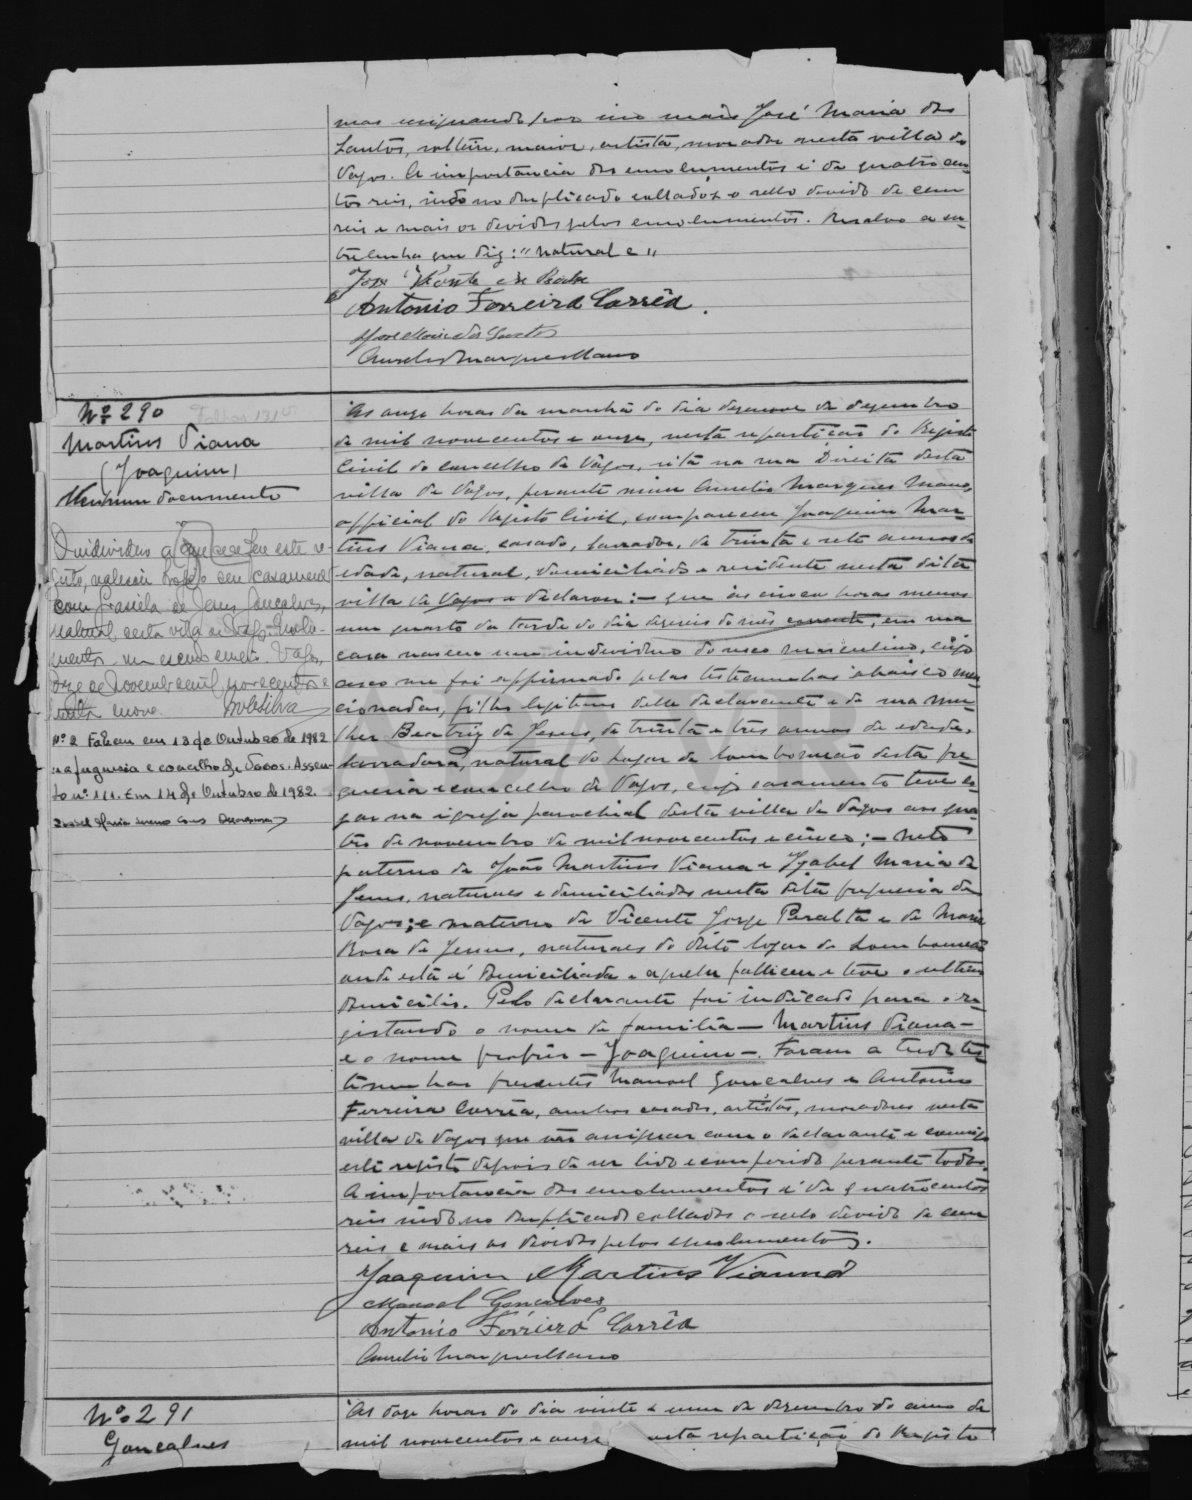 mas assignando por mim mais José Maria dos
Santos, solteiro, maior, artista, morador nesta villa de
Vagos. A importancia dos emolumentos é de quatrocen-
tos reis, indo no duplicado collado o sello devido de cem
reis e mais os devidos pelos emolumentos. Resalvo a en-
trelinha que diz: "natural e"
José Vicente
Antonio Ferreira Corrêa.
José Maria dos Santos
Aurelio Marques Mano
Nº 290
Martins Viana
(Joaquim)
Nenhum documento
O individuo a que se refere este re-
gisto, seu casamento
com Graciela de Jesus Gonçalves,
natural desta vila de Vagos. Emolu-
mentos um escudo e meio. Vagos,
doze de Novembro de mil novecentos e
trinta e nove. Silva
Nº 2 Faleceu em 13 de Outubro de 1982
na freguesia e concelho de Vagos. Assen-
to nº 111. Em 14 de Outubro de 1982.
Às onze horas da manhã do dia dezenove de dezembro
de mil novecentos e onze, nesta repartição do Registo
Civil do concelho de Vagos, sita na rua Direita desta
villa de Vagos, perante mim Aurelio Marques Mano,
official do Registo Civil, compareceu Joaquim Mar-
tins Viana, casado, lavrador, de trinta e sete annos de
edade, natural, domiciliado e residente nesta dita
villa de Vagos e declarou: – que ás cinco horas menos
um quarto da tarde do dia dezseis do mês corrente, em sua
casa nasceu um individuo do sexo masculino, cujo
sexo me foi affirmado pelas testemunhas abaixo men-
cionadas, filho legitimo delle declarante e de sua mu-
lher Beatriz de Jesus, de trinta e três annos de edade,
lavradora, natural do logar de Lombomeão desta fre-
guesia e concelho de Vagos, cujo casamento teve lo-
gar na igreja parochial desta villa de Vagos aos qua-
tro de novembro de mil novecentos e cinco; – Neto
paterno de João Martins Viana e Izabel Maria de
Jesus, naturaes e domiciliados nesta dita freguesia de
Vagos; e materno de Vicente Jorge Peralta e de Maria
Rosa de Jesus, naturaes do dito logar de Lombomeão
onde esta é domiciliada e aquelle falleceu e teve o ultimo
domicilio. Pelo declarante foi indicado para o re-
gistando o nome de familia – Martins Viana –
e o nome proprio – Joaquim –. Foram a tudo tes-
temunhas presentes Manoel Gonçalves e Antonio
Ferreira Corrêa, ambos casados, artistas, moradores nesta
villa de Vagos que vão assignar com o declarante e comigo
este registo depois de ser lido e conferido perante todos.
A importancia dos emolumentos é de quatrocentos
reis indo no duplicado collados o sello devido de cem
reis e mais os devidos pelos emolumentos.
Joaquim Martins Vianna
Manoel Gonçalves
Antonio Ferreira Corrêa
Aurelio Marques Mano
Nº 291
Gonçalves
Às doze horas do dia vinte e um de dezembro do anno de
mil novecentos e onze nesta repartição do Registo